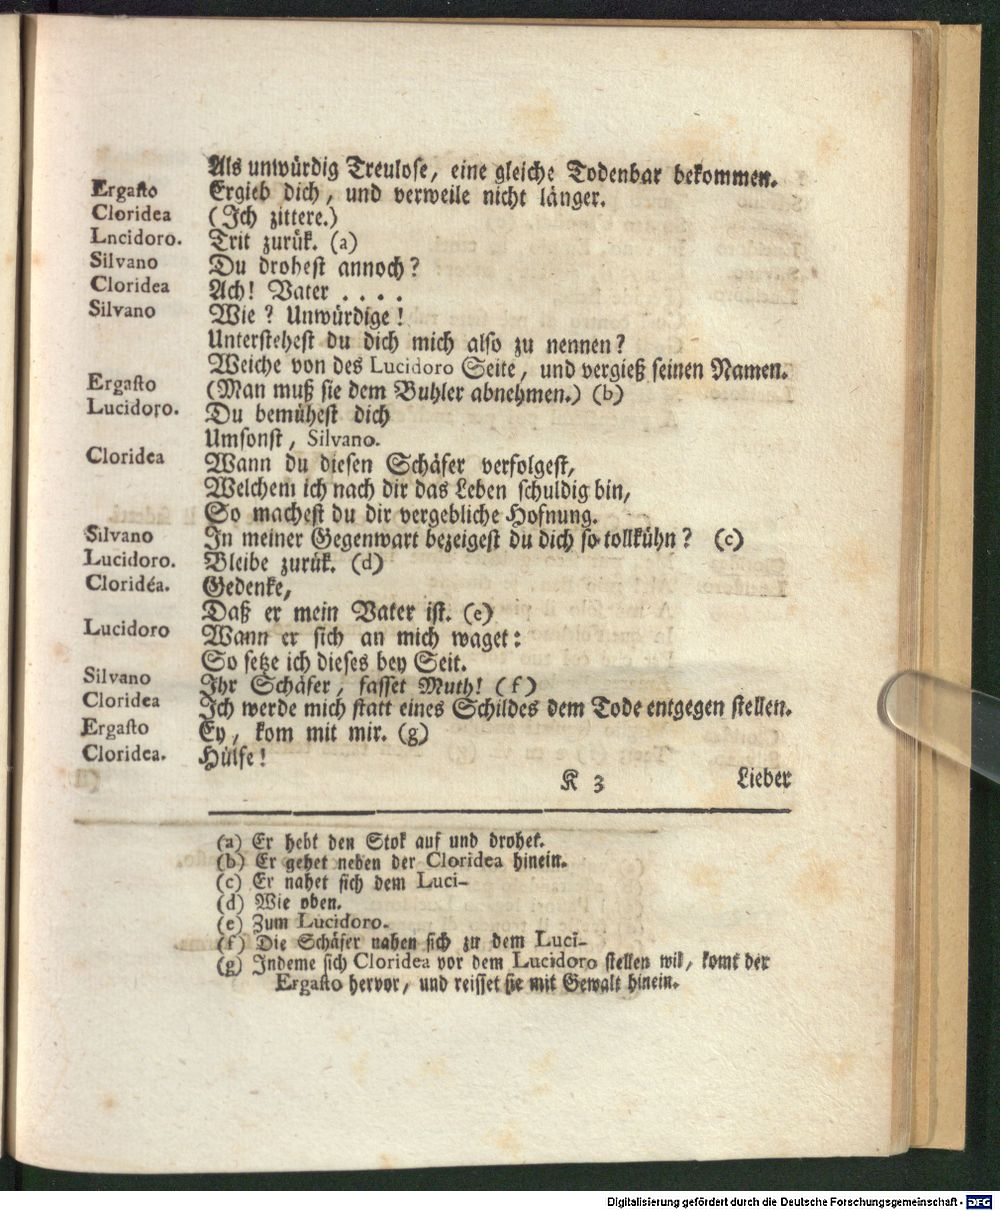 Als unwürdig Treulose, eine gleiche Todenbar bekommen.
Ergasto Ergieb dich, und verweile nicht länger.
Cloridea (Ich zittere.)
Lncidoro. Trit zurük. (a)
Silvano Du drohest annoch?
Cloridea Ach! Vater . . . .
Silvano Wie? Unwürdige!
Unterstehest du dich mich also zu nennen?
Weiche von des Lucidoro Seite, und vergieß seinen Namen.
Ergasto (Man muß sie dem Buhler abnehmen.) (b)
Lucidoro. Du bemühest dich
Umsonst, Silvano.
Cloridea Wann du diesen Schäfer verfolgest,
Welchem ich nach dir das Leben schuldig bin,
So machest du dir vergebliche Hofnung.
Silvano In meiner Gegenwart bezeigest du dich so tollkühn? (c)
Lucidoro. Bleibe zurük. (d)
Cloridéa. Gedenke,
Daß er mein Vater ist. (e)
Lucidoro Wann er sich an mich waget:
So setze ich dieses bey Seit.
Silvano Ihr Schäfer, fasset Muth! (f)
Cloridea Ich werde mich statt eines Schildes dem Tode entgegen stellen.
Ergasto Ey, kom mit mir. (g)
Cloridea. Hülfe!
K 3 Lieber
(a) Er hebt den Stok auf und drohet.
(b) Er gehet neben der Cloridea hinein.
(c) Er nahet sich dem Luci-
(d) Wie oben.
(e) Zum Lucidoro.
(f) Die Schäfer nahen sich zu dem Luci-
(g) Indeme sich Cloridea vor dem Lucidoro stellen wil, komt der
Ergasto hervor, und reisset sie mit Gewalt hinein.
Digitalisierung gefördert durch die Deutsche Forschungsgemeinschaft - DFG